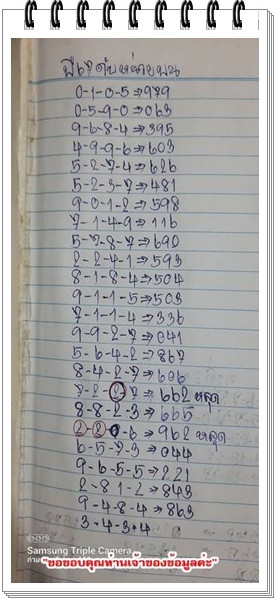 ปี67ดับหน่วยบน
0-1-0-5⇒979
0-5-9-0⇒063
9-6-8-4⇒395
4-9-9-6⇒603
5-2-7-4⇒626
5-2-3-7⇒481
9-0-1-2⇒598
7-1-4-9⇒116
5-7-8-7⇒690
2-2-4-1⇒593
8-1-8-4⇒504
9-1-1-5⇒503
7-1-1-4⇒336
9-9-2-7⇒041
5-6-4-2⇒867
8-4-2-7⇒606
7-2-2-7⇒662 หลุด
8-8-2-3⇒665
2-2-0-6⇒962 หลุด
6-5-7-3⇒044
9-6-5-5⇒221
2-8-1-2⇒843
9-4-8-4⇒863
3-4-3-4
Samsung Triple Camera
"ขอขอบคุณท่านเจ้าของข้อมูลค่ะ"